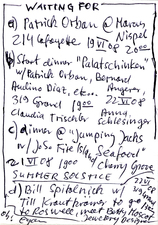 WAITING FOR
a) Patrick Orban @ Marcus Nispel
214 Lafayette 19 VI 08 2000
b) Start dinner "Palatschinken"
w/ Patrick Orban, Bernard
Audino Diaz, etc..
319 Grand 1900 22 VI 08
Claudia Trischler Anna Schlesinger
c) dinner @ "Jumping Jacks
w/ JoSo Fire Island Seafood"
21 VI 08 1900 Cherry Grove
SUMMER SOLSTICE
d) Bill Spitenich w/
Till Krautkramer to go
to Roswell, meet Betty
Jewelery designer